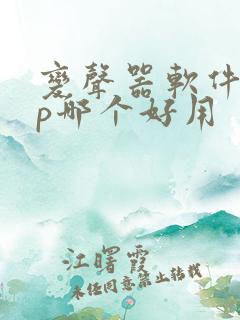 變聲器軟件
p哪个好用
江曙霞
未经同意禁止转载